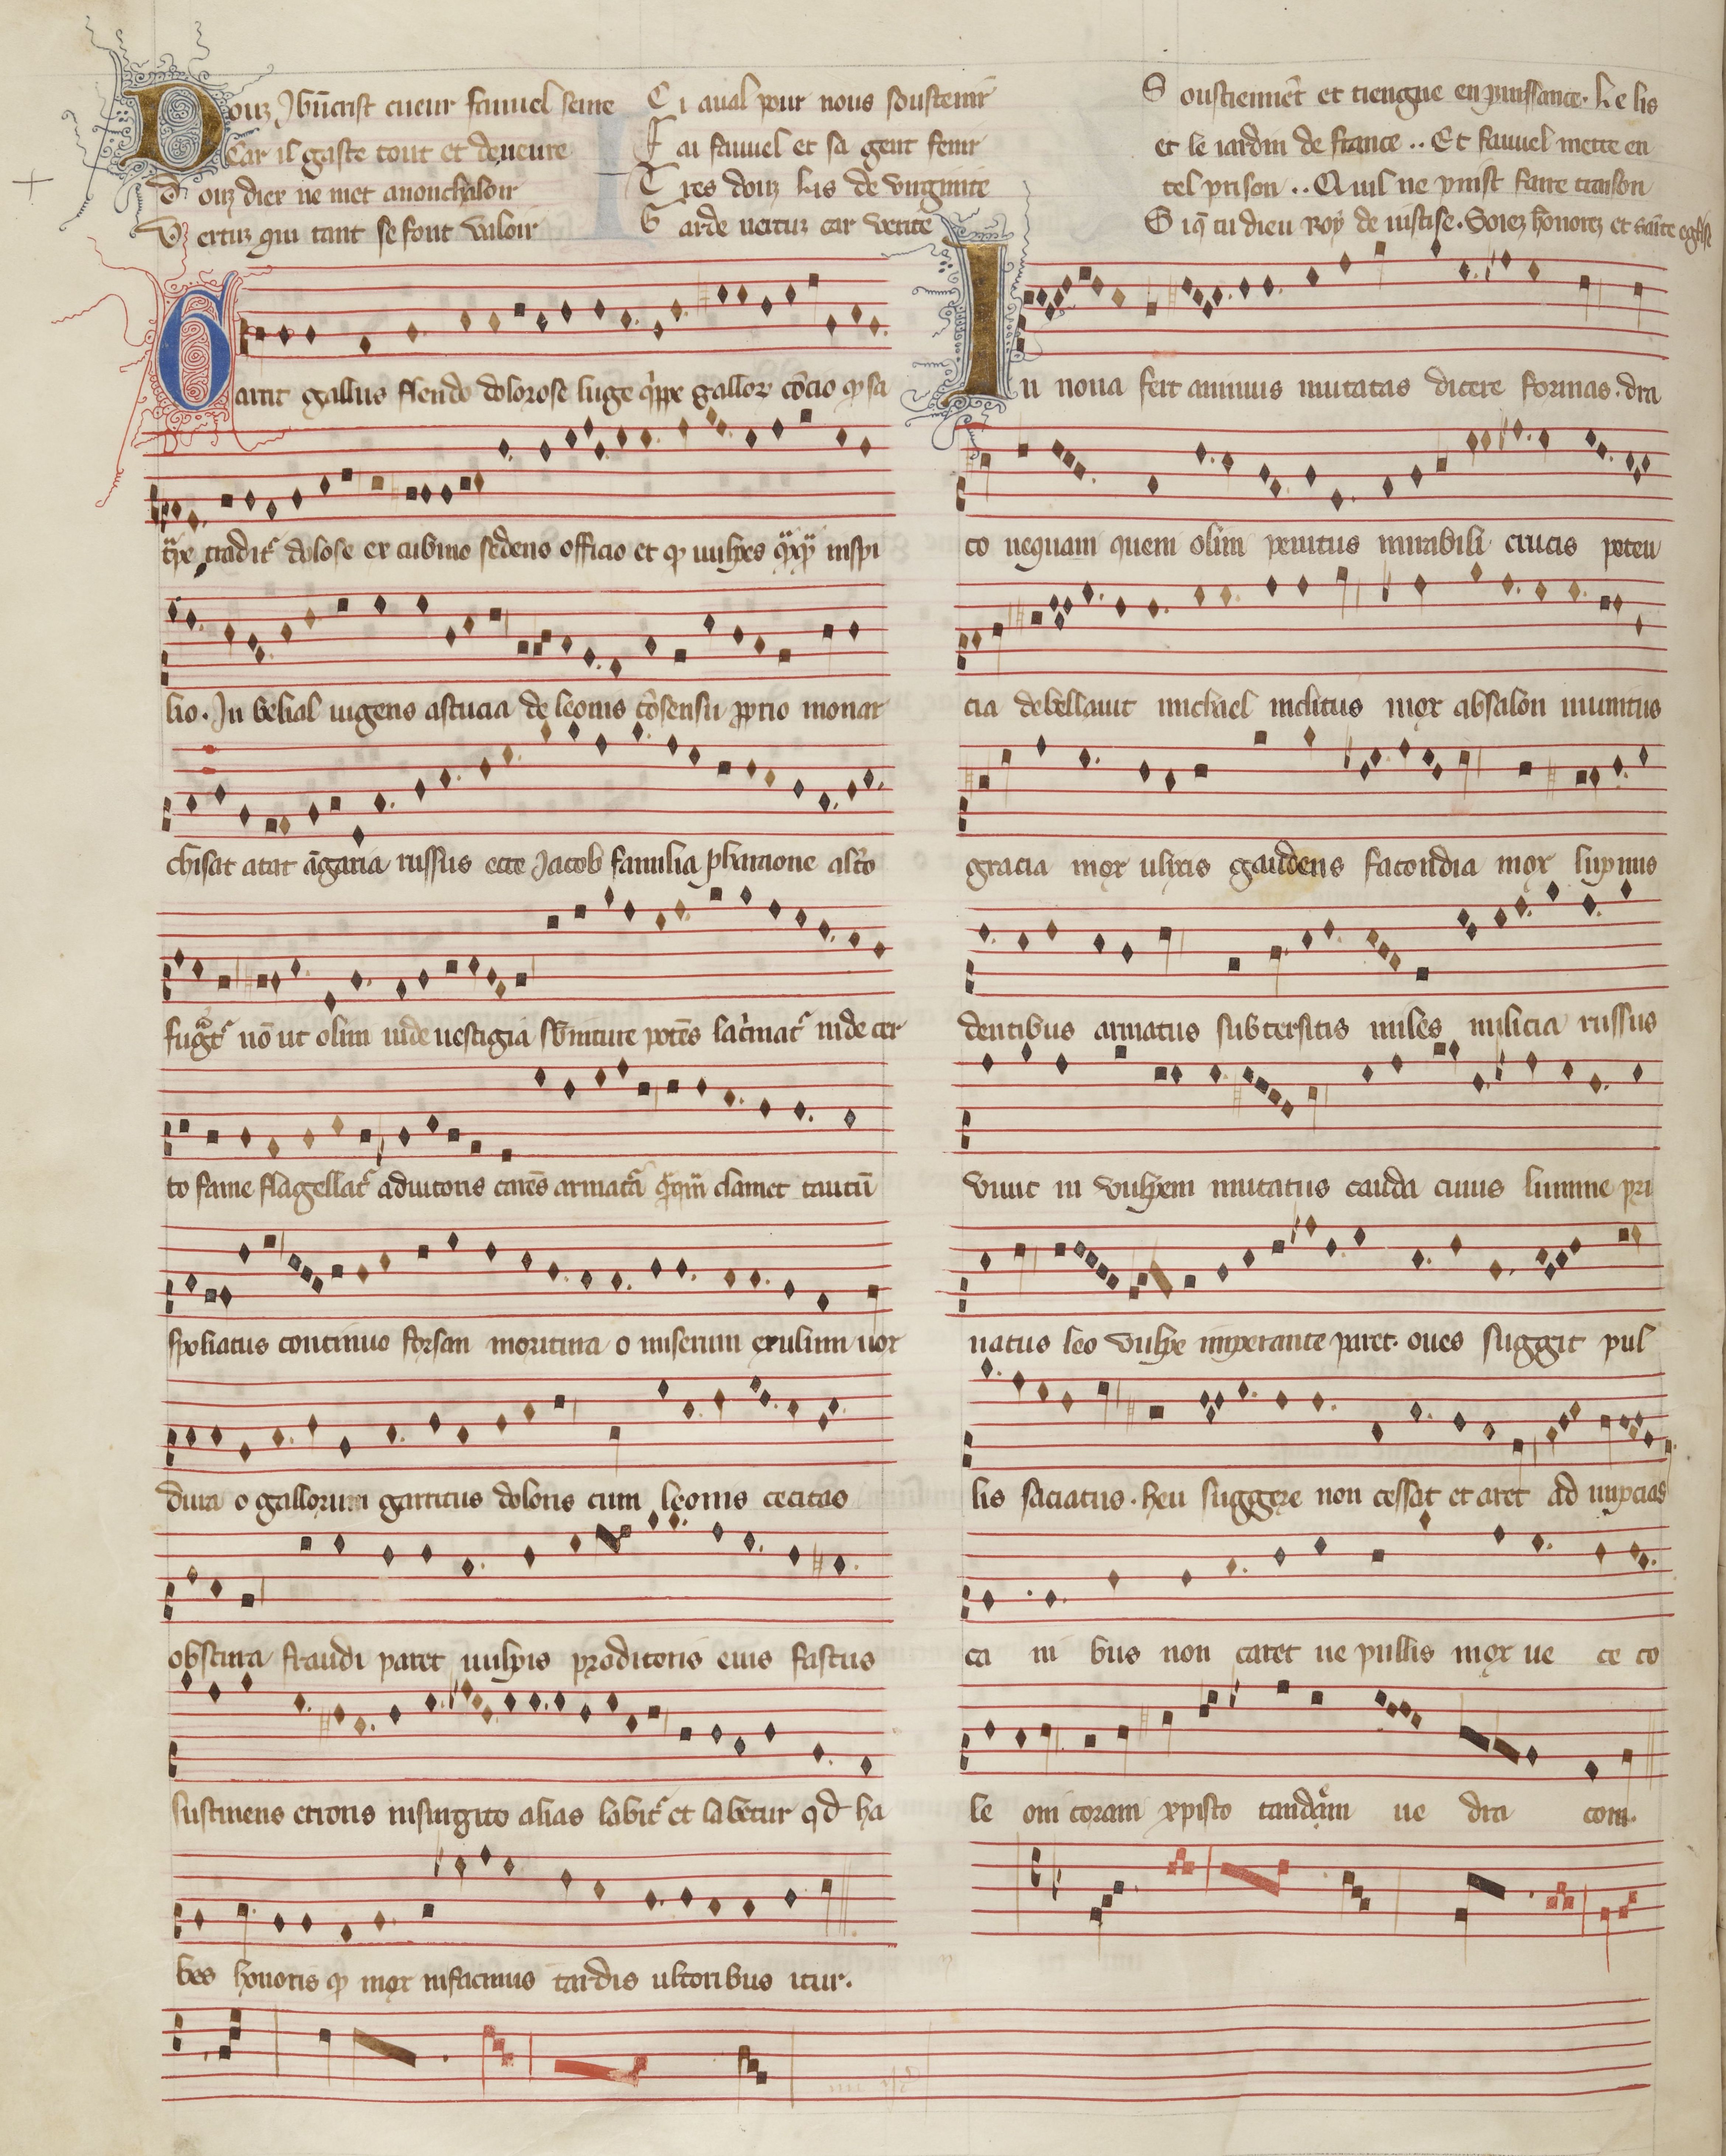 Douz Jhūcrist cueur fauuel seure
Car il gaste tout et deueure
Douz diex ne met anonchaloir
Vertuz qui tant se font valoir
Ci aual pour nous soustenir
Fai fauuel et sa gent fenir
Tres douz lis de virginite
Garde uertuz car verite
Soustiennēt et tiengne en puissance. Le lis
et le iardin de france .. Et fauuel mette en
tel prison .. Quil ne puist faire traison
Siq̄ tu dieu Roy de iustise. Soiez hōnorez et saīte eglise
Garrit gallus flendo dolorose luge q̇ppe gallorꝝ cōcio qͥ sa
tͥpe tradit᷑ dolose ex cubino sedens officio et qͥ uulpes inspi
lio. In belial uigens astucia de leonis cōsensu ꝓprio monar
chisat atat āgaria russus ecce Jacob familia pharaone altͦo
fugat᷑ nō ut olim iude uestigia sbintrare potēs lac̓mat᷑ in deser
to fame flagellat᷑ adiutoris carēs armatᷓa clamet tautū
spoliatus continuo forsan moritura o miserum exulum uox
dura o gallorum garritus doloris cum leonis cecitas
obscura fraudi paret uulpis proditoris eius fastus
sustinens erroris insurgito alias labit᷑ et labetur qd ha
bes honoris qͥ mox infacinus tardis ultoribus itur.
In noua fert animus mutatas dicere formas. dra
co nequam quem olim penitus mirabili crucis poten
cia debellauit michael inclitus mox absalon munitus
gracia mox ulixis gaudens facondia mox lupinus
dentibus armatus subtersitis miles milicia russus
viuit in vulpem mutatus cauda cuius lumine pri
uatus leo vulpe imperante paret. oues suggit pul
lis saciatus. heu suggere non cessat et aret ad nupcias
ca ni bus non caret ue pullis mox ue ce co
le oni coram xpisto tandᷓem ue dra coni.